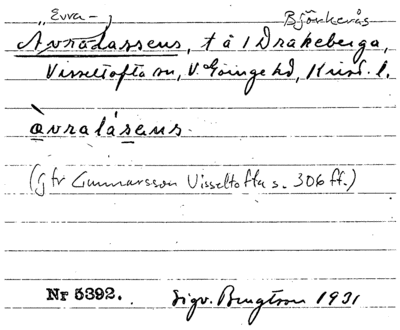 „Evra-„ Björkerås
Avradassens, t å 1 Drakeberga,
Visseltofta sn, V. Göinge hd, Krist. l.
àvralásens
(jfr Gunnarsson Visseltofta s. 306 ff.)
Nr 5392. Sigv. Bengtsson 1931